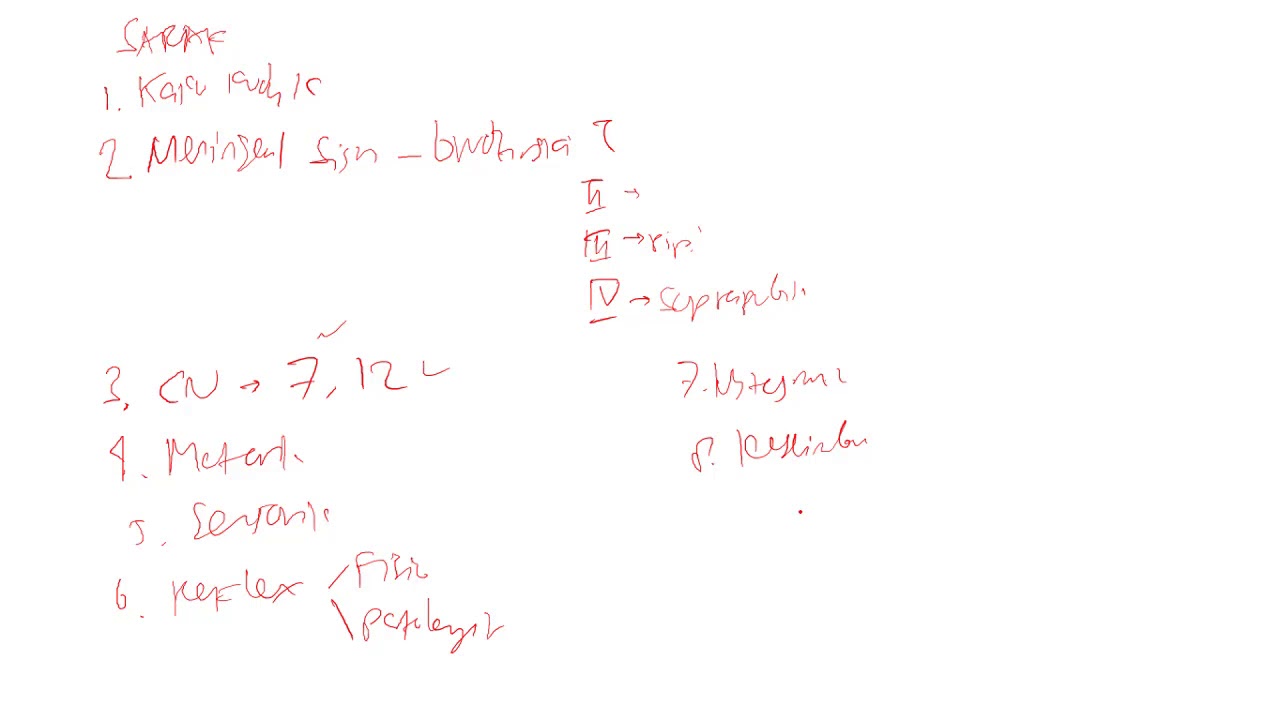 SARAF
1. Kaku kuduk
2 Meningeal Sign - brudzinski I
II →
III → pipi
IV → Suprapubis
3. CN → 7, 12
4. Motorik
5. Sensorik
6. Reflex
Fisio
patologis
7.
8.